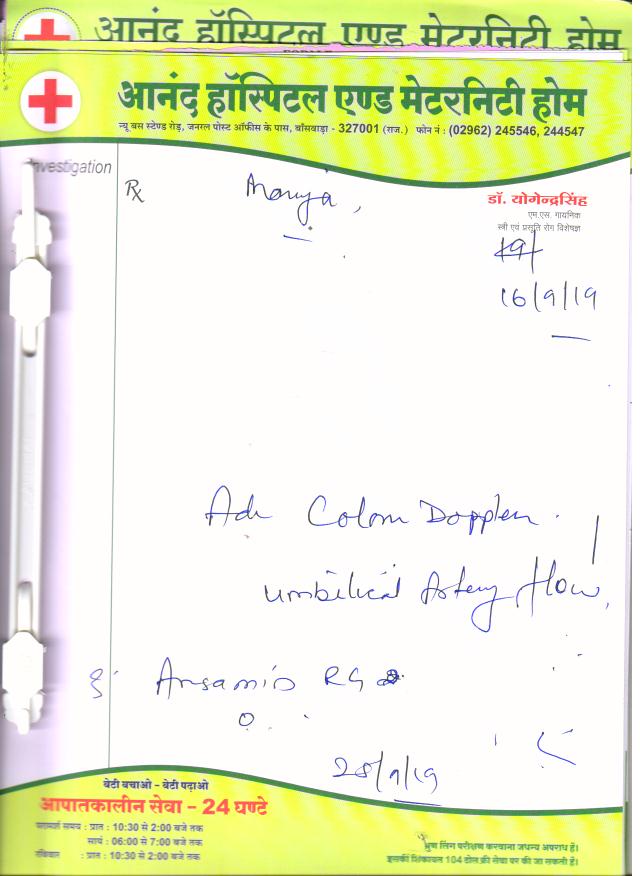 आनंद हॉस्पिटल एण्ड मेटरनिटी होम
आनंद हॉस्पिटल एण्ड मेटरनिटी होम
न्यू बस स्टेण्ड रोड़, जनरल पोस्ट ऑफीस के पास, बाँसवाड़ा - 327001 (राज.) फोन नं : (02962) 245546, 244547
Investigation
℞
डॉ. योगेन्द्रसिंह
एम.एस. गायनिक
स्त्री एवं प्रसूति रोग विशेषज्ञ
16/9/19
Adv Colour Doppler
umbilical Artery flow,
28/9/19
बेटी बचाओ - बेटी पढ़ाओ
आपातकालीन सेवा - 24 घण्टे
परामर्श समय : प्रात : 10:30 से 2:00 बजे तक
सायं : 06:00 से 7:00 बजे तक
रविवार : प्रात : 10:30 से 2:00 बजे तक
भ्रूण लिंग परीक्षण करवाना जघन्य अपराध है।
इसकी शिकायत 104 टोल फ्री सेवा पर की जा सकती है।